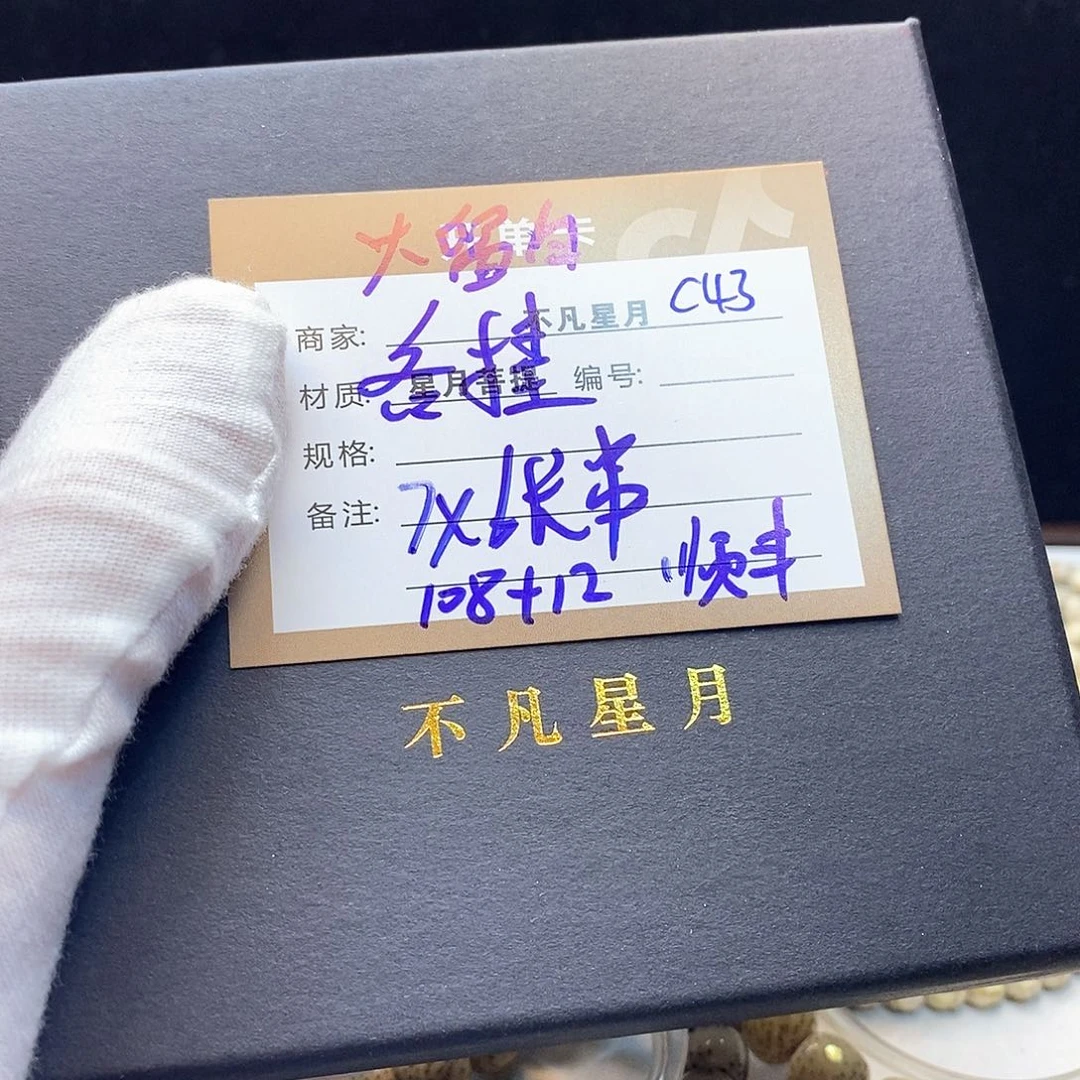 大留白
单卡
商家: 不凡星月 C43
材质: 星月菩提 编号:
各挂
规格:
7x6长串
备注:
108+12 顺丰
不凡星月